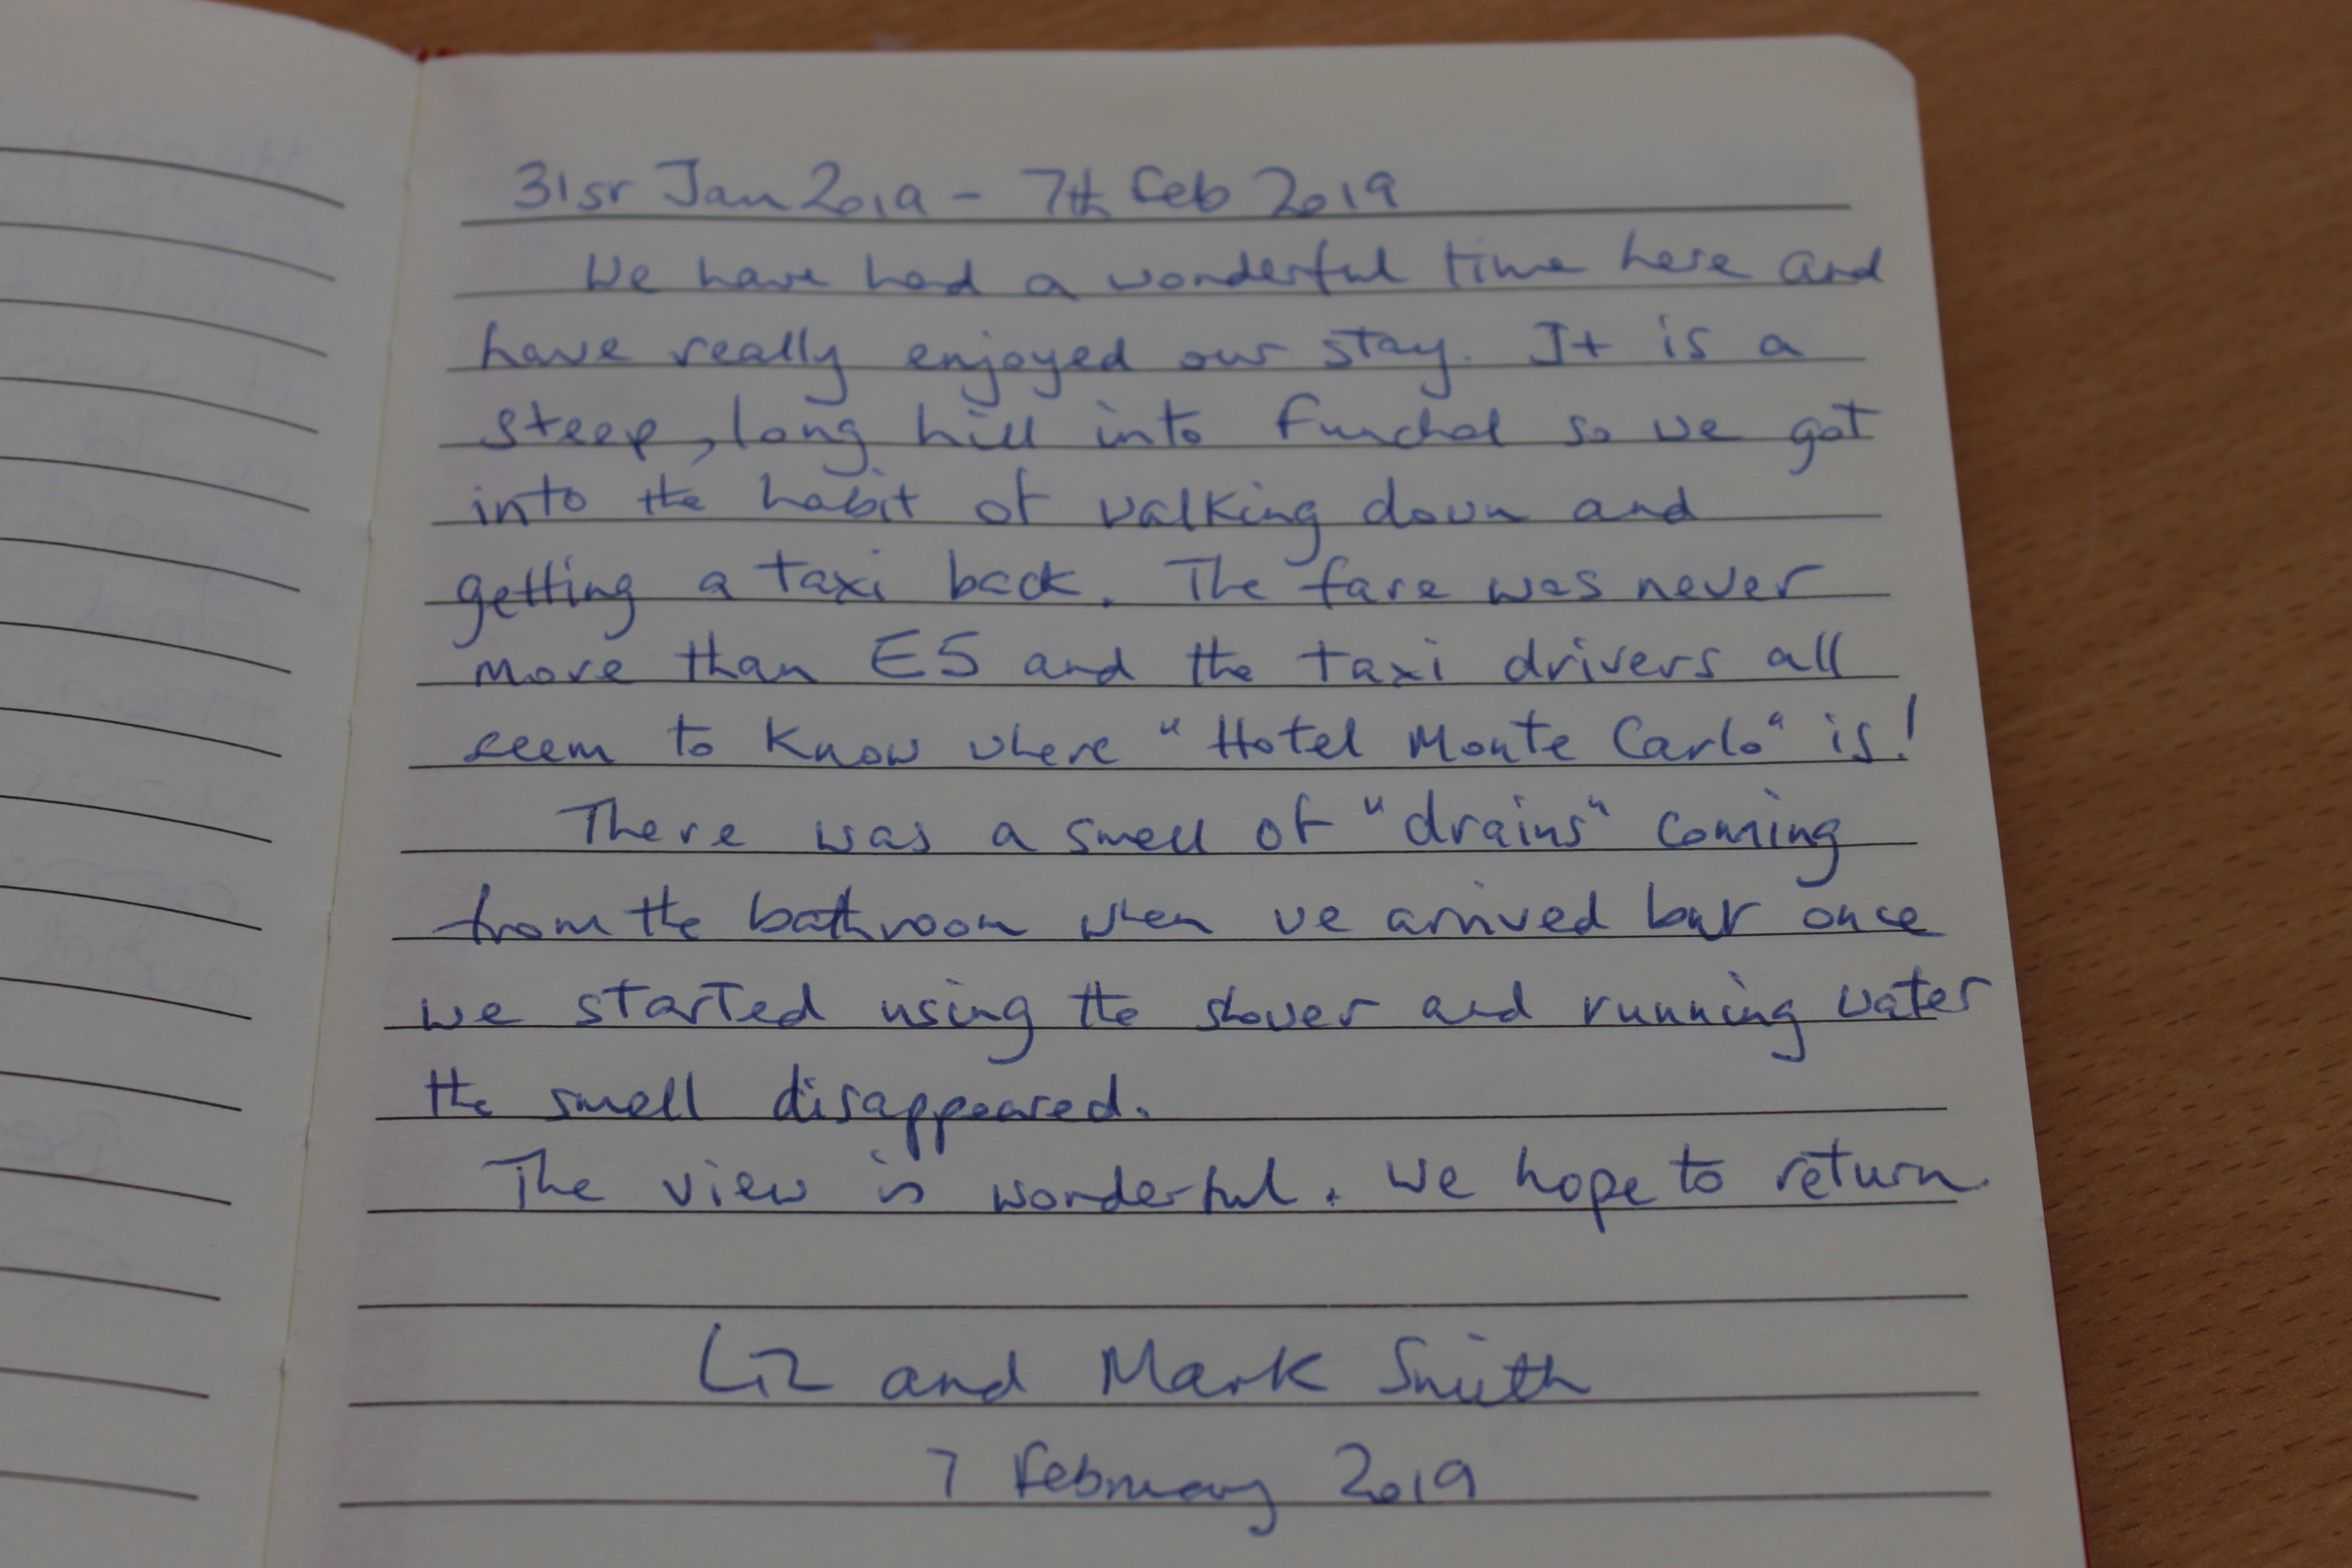 31st Jan 2019 - 7th Feb 2019
We have had a wonderful time here and
have really enjoyed our stay. It is a
steep, long hill into Funchal so we got
into the habit of walking down and
getting a taxi back. The fare was never
more than €5 and the taxi drivers all
seem to know where "Hotel Monte Carlo" is!
There was a smell of "drains" coming
from the bathroom when we arrived but once
we started using the shower and running water
the smell disappeared.
The view is wonderful. We hope to return.
Liz and Mark Smith
7 February 2019